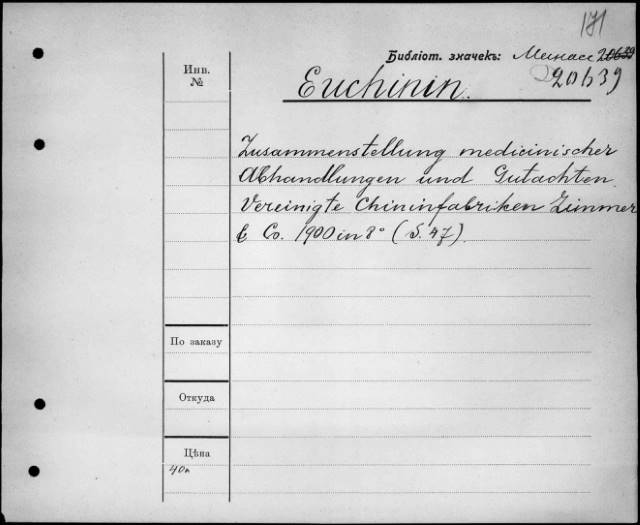 171
Библіот. значекъ: Минасс 20639
20639
Инв.
№
Euchinin.
Zusammenstellung medicinischer
Abhandlungen und Gutachten.
Vereinigte Chininfabriken Zimmer
& Co. 1900 in 8° (S. 47).
По заказу
Откуда
Цѣна
40к